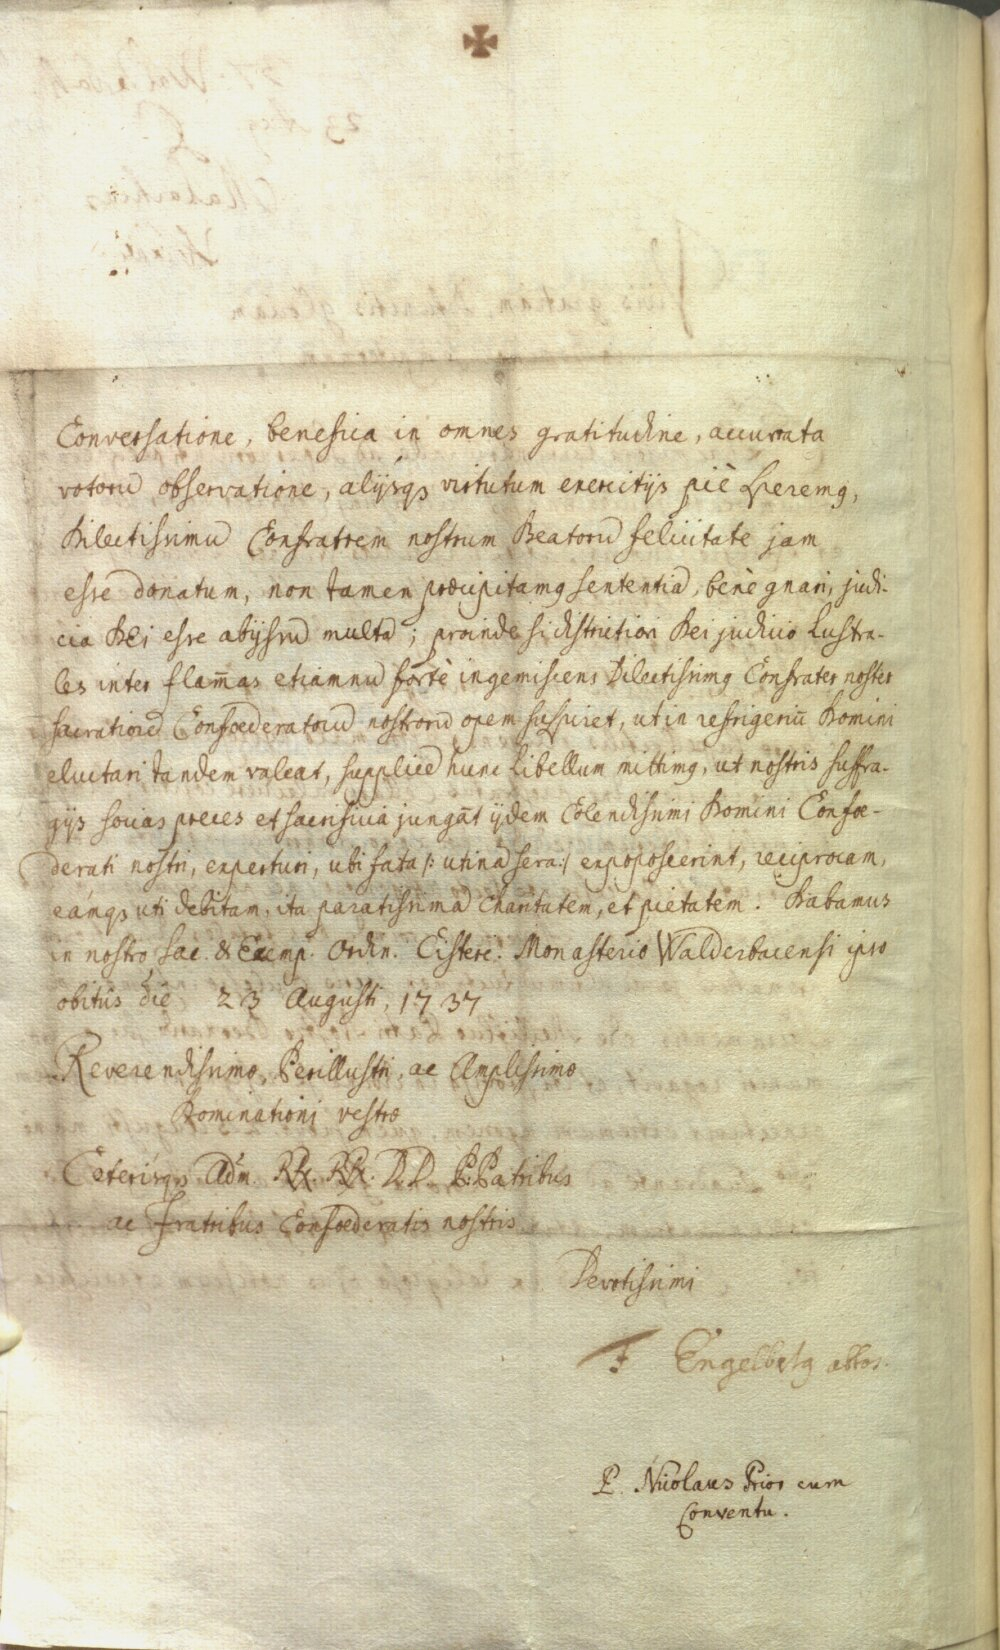 Conversatione, benefica in omnes gratitudine, accurata
votorũ observatione, alijsq̃ virtutum exercitijs piè speremꝯ,
Dilectissimũ Confratrem nostrum Beatorũ felicitate jam
esse donatum, non tamen præcipitamꝯ sententiã, benè gnari, judi-
cia Dei esse abijssũ multã; proinde si districtiori Dei judicio lustra-
les inter flam̃as etiamnũ fortè ingemiscens Dilectissimꝯ Confrater noster
sacratiorẽ Confœderatorũ nostrorũ opem suspiret, ut in refrigeriũ Domini
eluctari tandem valeat, supplicẽ hunc libellum mittimꝯ, ut nostris suffra-
gijs socias preces et sacrificia jungãt ijdem Colendissimi Domini Confœ-
derati nostri, experturi, ubi fata /: utinã sera:/ expoposcerint, reciprocam,
eámq̃ uti debitam, ita paratissimã charitatem, et pietatem. Dabamus
in nostro Sac. & Exemp. Ordin. Cisterc. Monasterio Walderbacensi ipso
obitûs die 23 Augusti, 1737
Reverendissimæ, Perillustri, ac Amplissimæ
Dominationi vestræ
Ceterisq̃ Adm. RR. RR. DD. PP. Patribus
ac Fratribus Confœderatis nostris
Devotissimi
F Engelbertꝯ abbas.
P. Nicolaus Prior cum
Conventu.